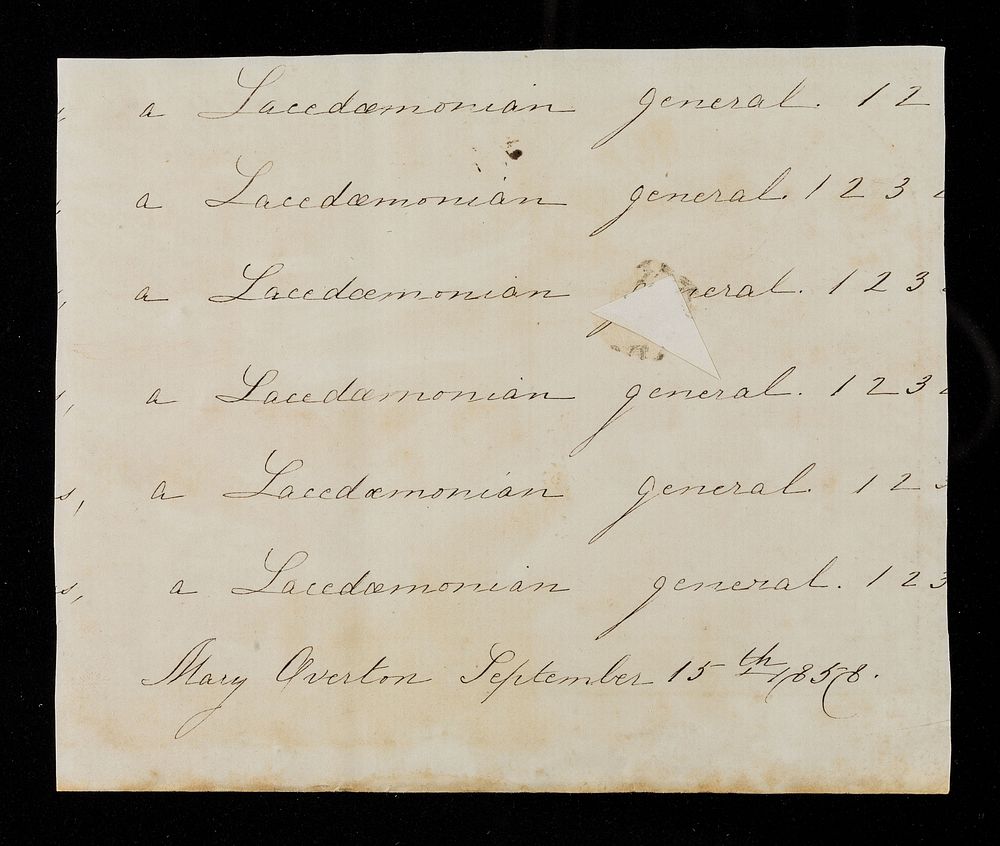 , a Lacedæmonian general. 1 2
, a Lacedæmonian general. 1 2 3
, a Lacedæmonian general. 1 2 3
, a Lacedæmonian general. 1 2 3
s, a Lacedæmonian general. 1 2 3
s, a Lacedæmonian general. 1 2 3
Mary Overton September 15th 1858.